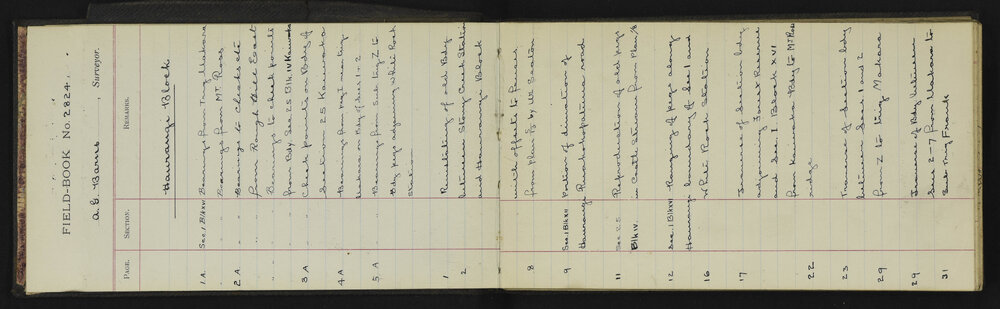 FIELD-BOOK No. 2824
A. G. Barns, Surveyor.
PAGE. SECTION. REMARKS.
Haurangi Block
1A Sec. 1 Blk XV Bearings from Trig Makara
" " Bearings from Mt Ross
2A " Bearings to Checks etc
" from Rough Hill East
" " Bearings to check points
from Bdy. Sec. 25 Blk. IV Kaiwaka
3A " Check points on Bdys of
Section 25 Kaiwaka
4A " Bearings from peg I
on Bdy of Secs 1 & 2
5A " Bearings from Sub Trig Z to
Bdy pegs adjoining White Rock
Station
1 Reinstating of old Bdy
2 between Stony Creek Station
and Haurangi Block
with offsets to fences
8 from Plan by W. Seaton
9 Sec. 1 Blk XV Portion of deviation of
Haurangi road
11 Sec 25 Reproduction of old pegs
Blk IV. in Creek from Plan
12 Sec. 1 Blk XV Ranging of pegs along
Haurangi boundary of Sec. 1 and
16 White Rock Station
17 Traverse of Section bdy
adjoining Forest Reserve
and Sec. 1. Block XVI
from Kaiwaka Bdy to Mt Ross
22 ridge
23 Traverse of Section bdy
between Secs 1 and 2
29 from Z to trig Makara
29 Traverse of Bdy between
Secs 2-7 from Makara to
31 Sub Trig Frank